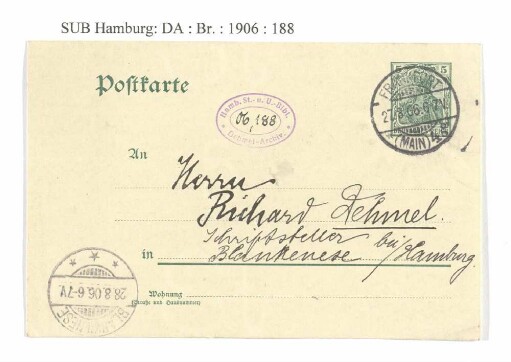 SUB Hamburg: DA : Br. : 1906 : 188
Postkarte
5 5
Hamb. St.- u. U.-Bibl.
06,188
* Dehmel-Archiv. *
FRANKFURT
27.8.06.6-7N.
(MAIN)
An
Herrn
Richard Dehmel.
Schriftsteller bei
in Blankenese / Hamburg.
Wohnung
(Straße und Hausnummer)
28.8.06.6-7V.
BLANKENESE